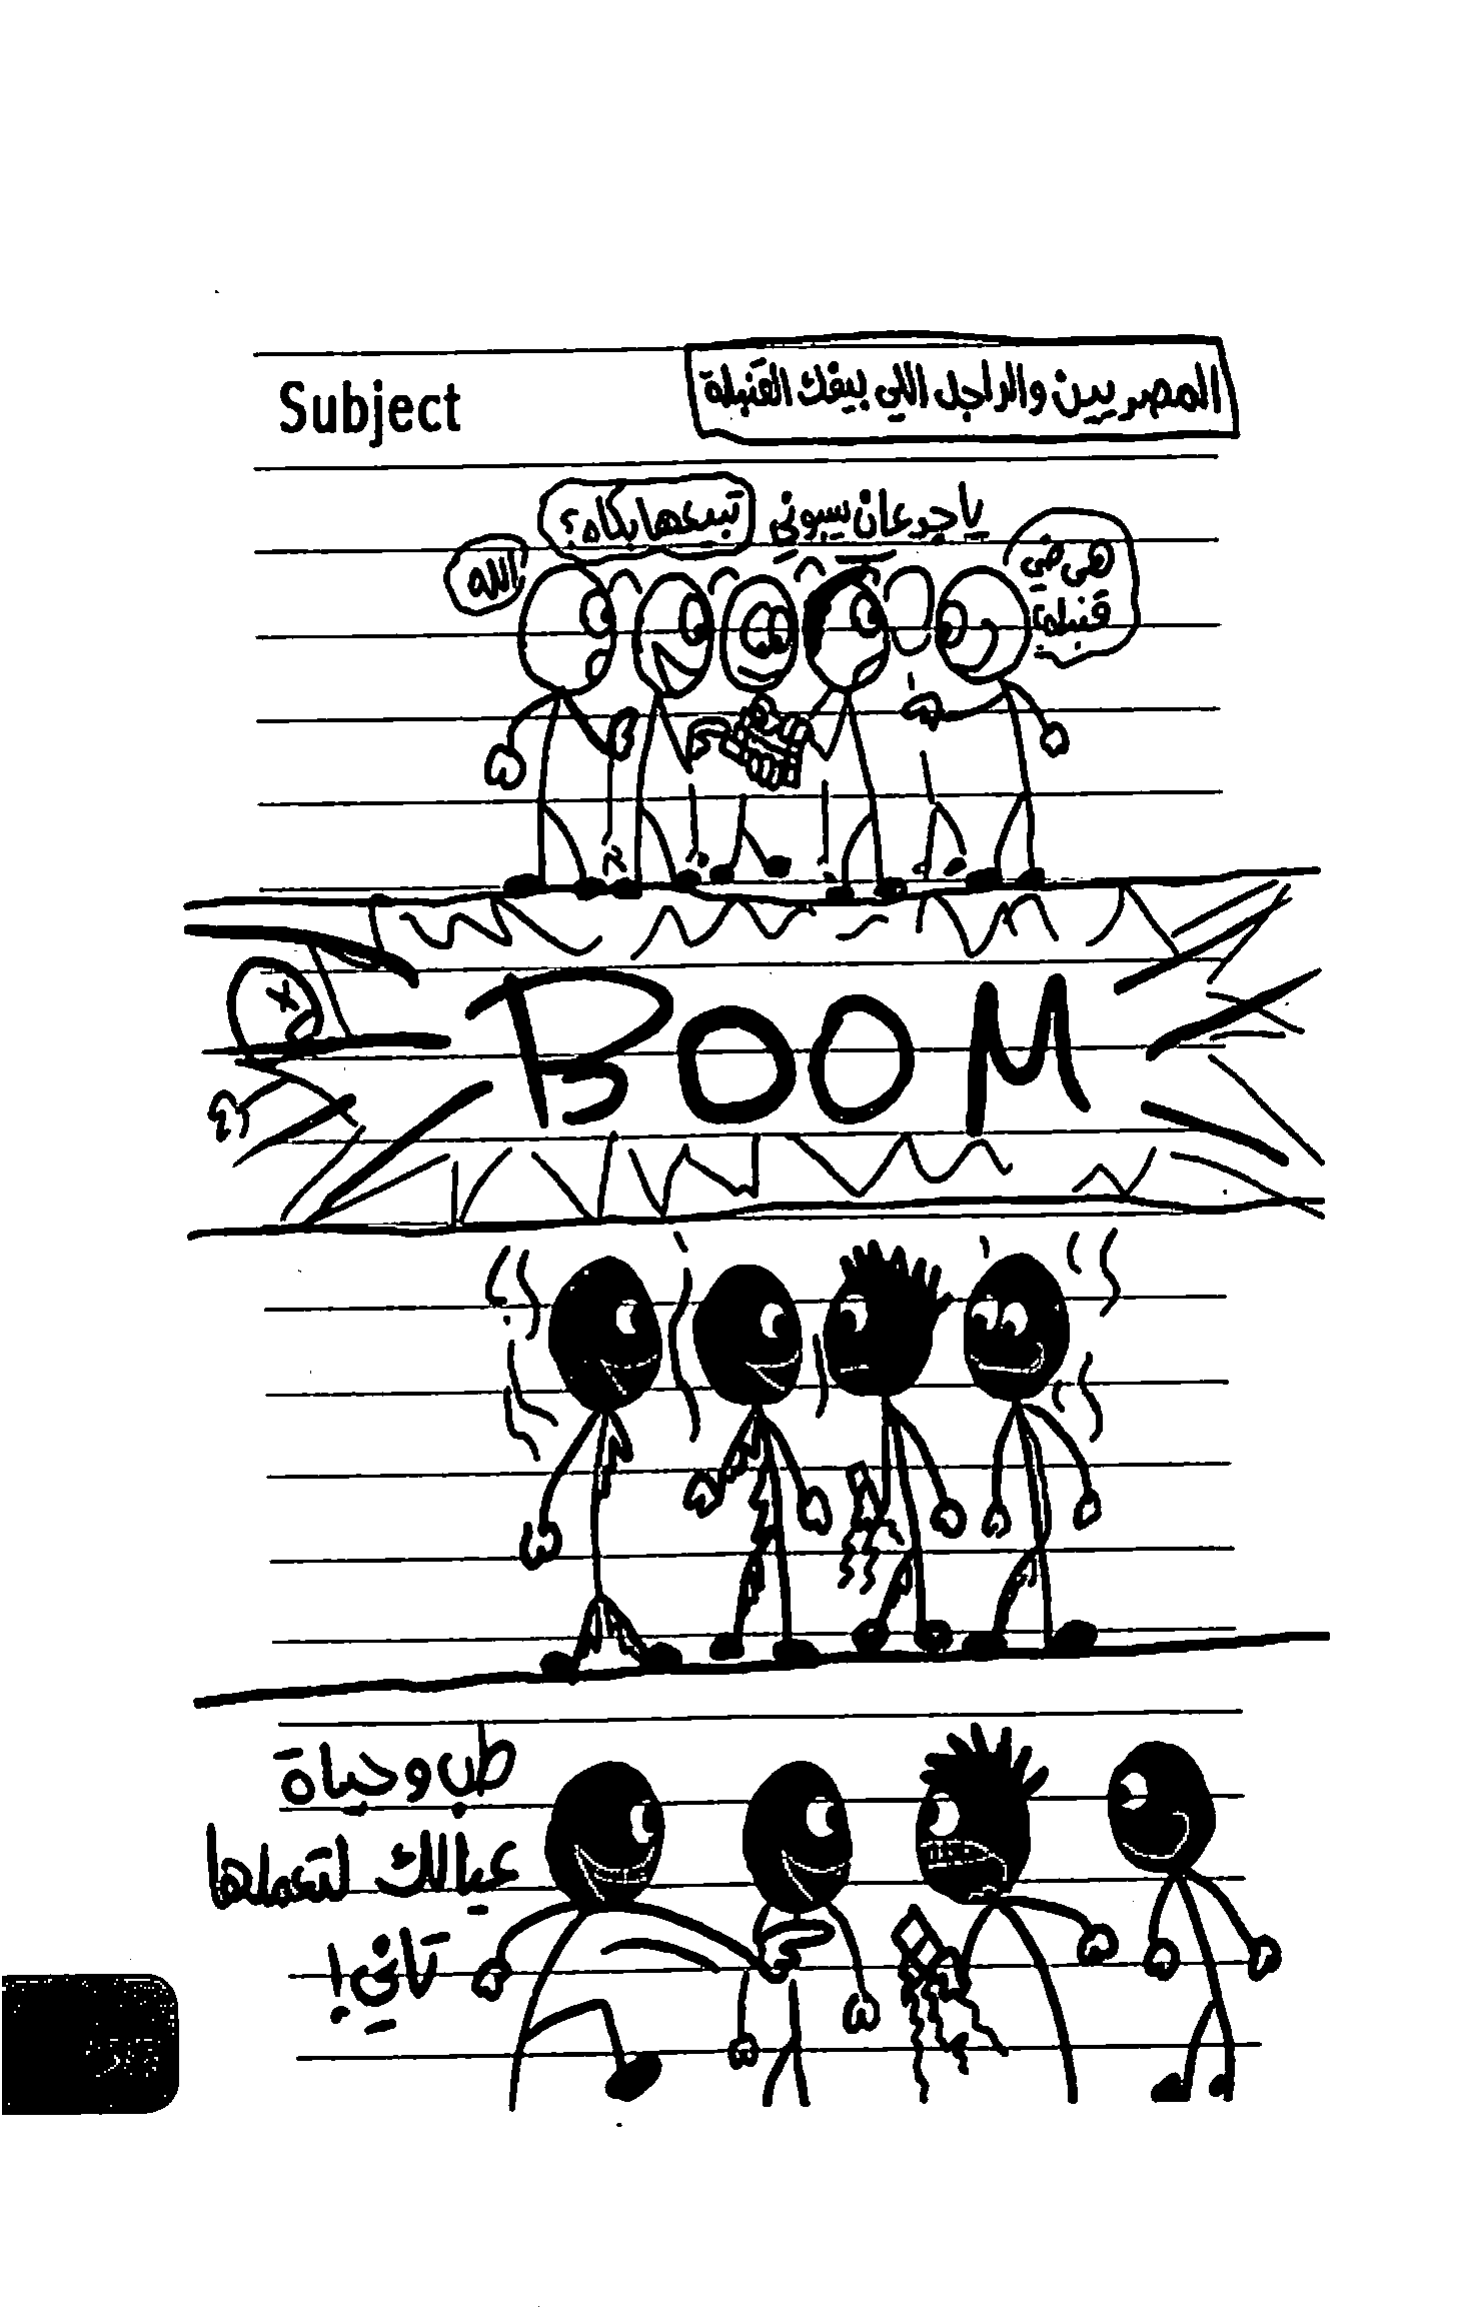 Subject
المصريين والراجل اللي بيفك القنبلة
هي دي
قنبلة؟
يا جدعان سيبوني
تبيعها بكام؟
الله
BOOM
طب وحياة
عيالك لتعملها
تاني!